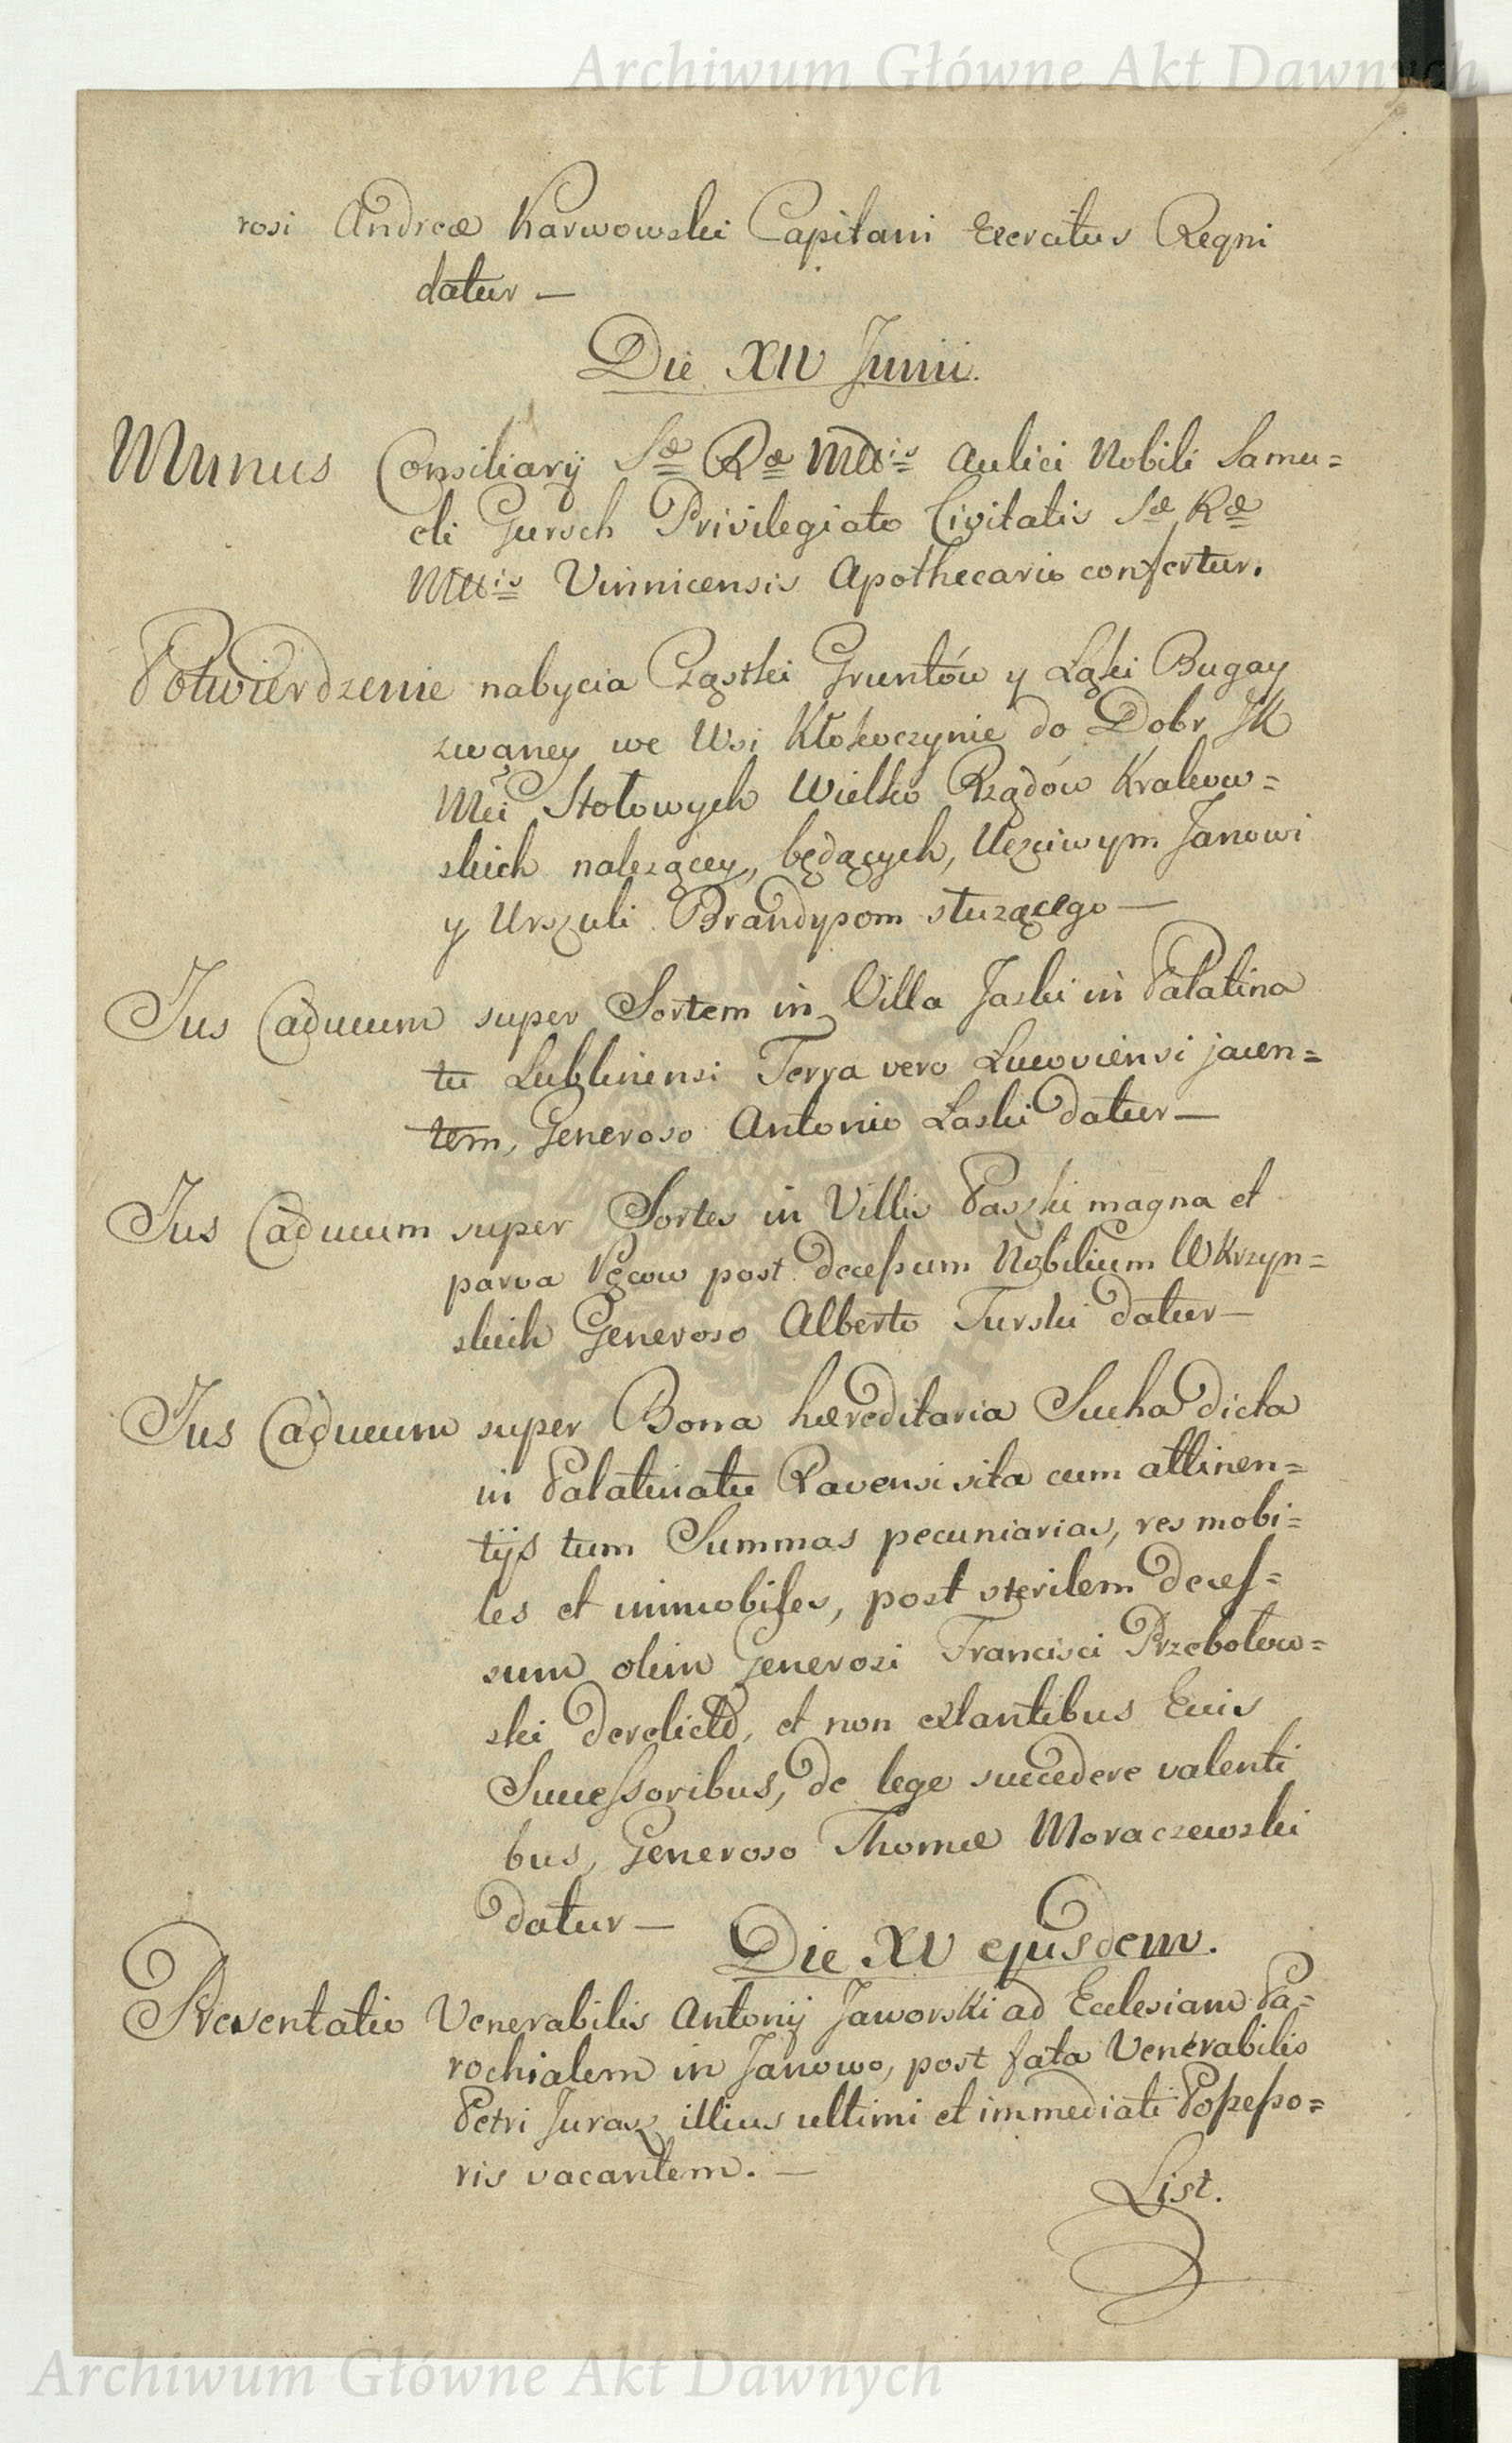 Archiwum Główne Akt Dawnych
rosi Andreæ Karwowski Capitani Exercitus Regni
datur —
Die XIV Junii.
Munus Consiliarij Sæ Ræ Mttis Aulici Nobili Samu=
eli Gursch Privilegiato Civitatis Sæ Ræ
Mttis Vinnicensis Apothecario confertur.
Potwierdzenie nabycia Cząstki Gruntów y Łąki Bugay
zwąney we Wsi Kłokoczynie do Dobr JK
Mci Stołowych Wielko Rządów Krakow=
skich nalezącey, będących, Uczciwym Janowi
y Urszuli Brandysom słuzącego —
Jus Caducum super Sortem in Villa Jaski in Palatina
tu Lublinensi Terra vero Lucoviensi jacen=
tem, Generoso Antonio Laski datur —
Jus Caducum super Sortes in Villis Paszki magna et
parva Pęcow post decessum Nobilium Wkrzyn=
skich Generoso Alberto Turski datur —
Jus Caducum super Bona hæreditaria Sucha dicta
in Palatinatu Ravensi sita cum attinen=
tijs tum Summas pecuniarias, res mobi=
les et immobiles, post sterilem deces=
sum olim Generosi Francisci Przebołow=
ski derelicta, et non extantibus Ejus
Successoribus, de lege succedere valenti
bus, Generoso Thomæ Moraczewski
datur —
Die XV ejusdem.
Presentatio Venerabilis Antonij Jaworski ad Ecclesiam Pa=
rochialem in Janowo, post fata Venerabilis
Petri Jurasz illius ultimi et immediati Possesso=
ris vacantem. —
List.
Archiwum Główne Akt Dawnych